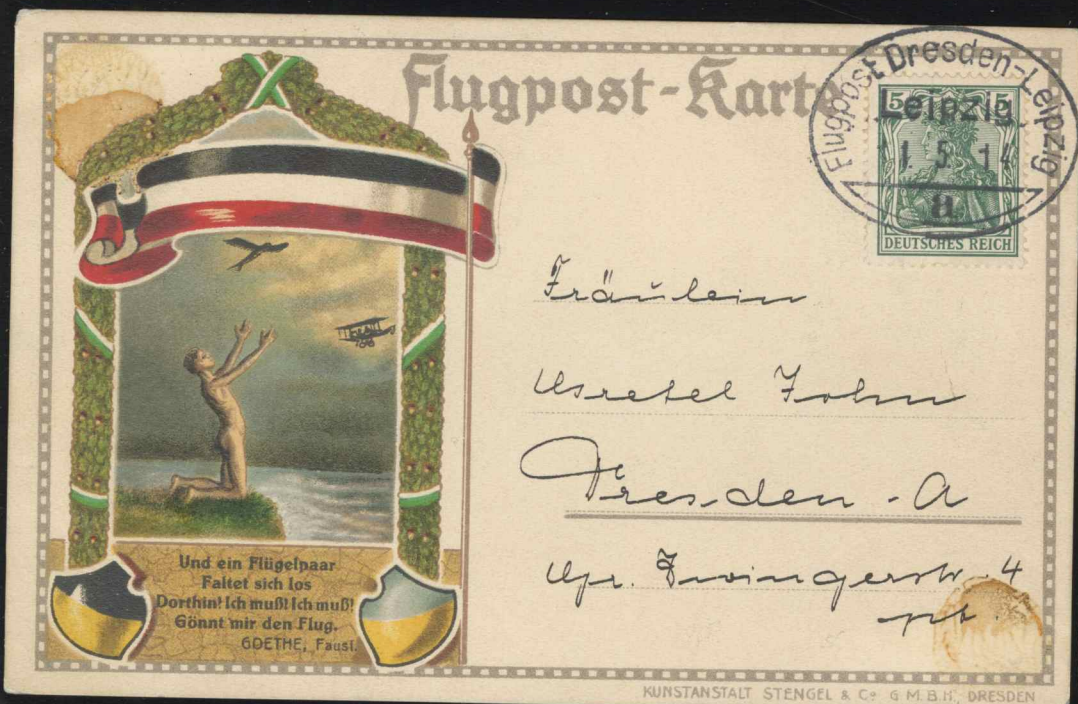 Flugpost-Karte
Flugpost Dresden-Leipzig
Leipzig
1.5.14
a
5 5
DEUTSCHES REICH
Fräulein
Dresden-A
4
Und ein Flügelpaar
Faltet sich los
Dorthin! Ich muß! Ich muß!
Gönnt mir den Flug.
GOETHE, Faust.
KUNSTANSTALT STENGEL & Co G.M.B.H., DRESDEN